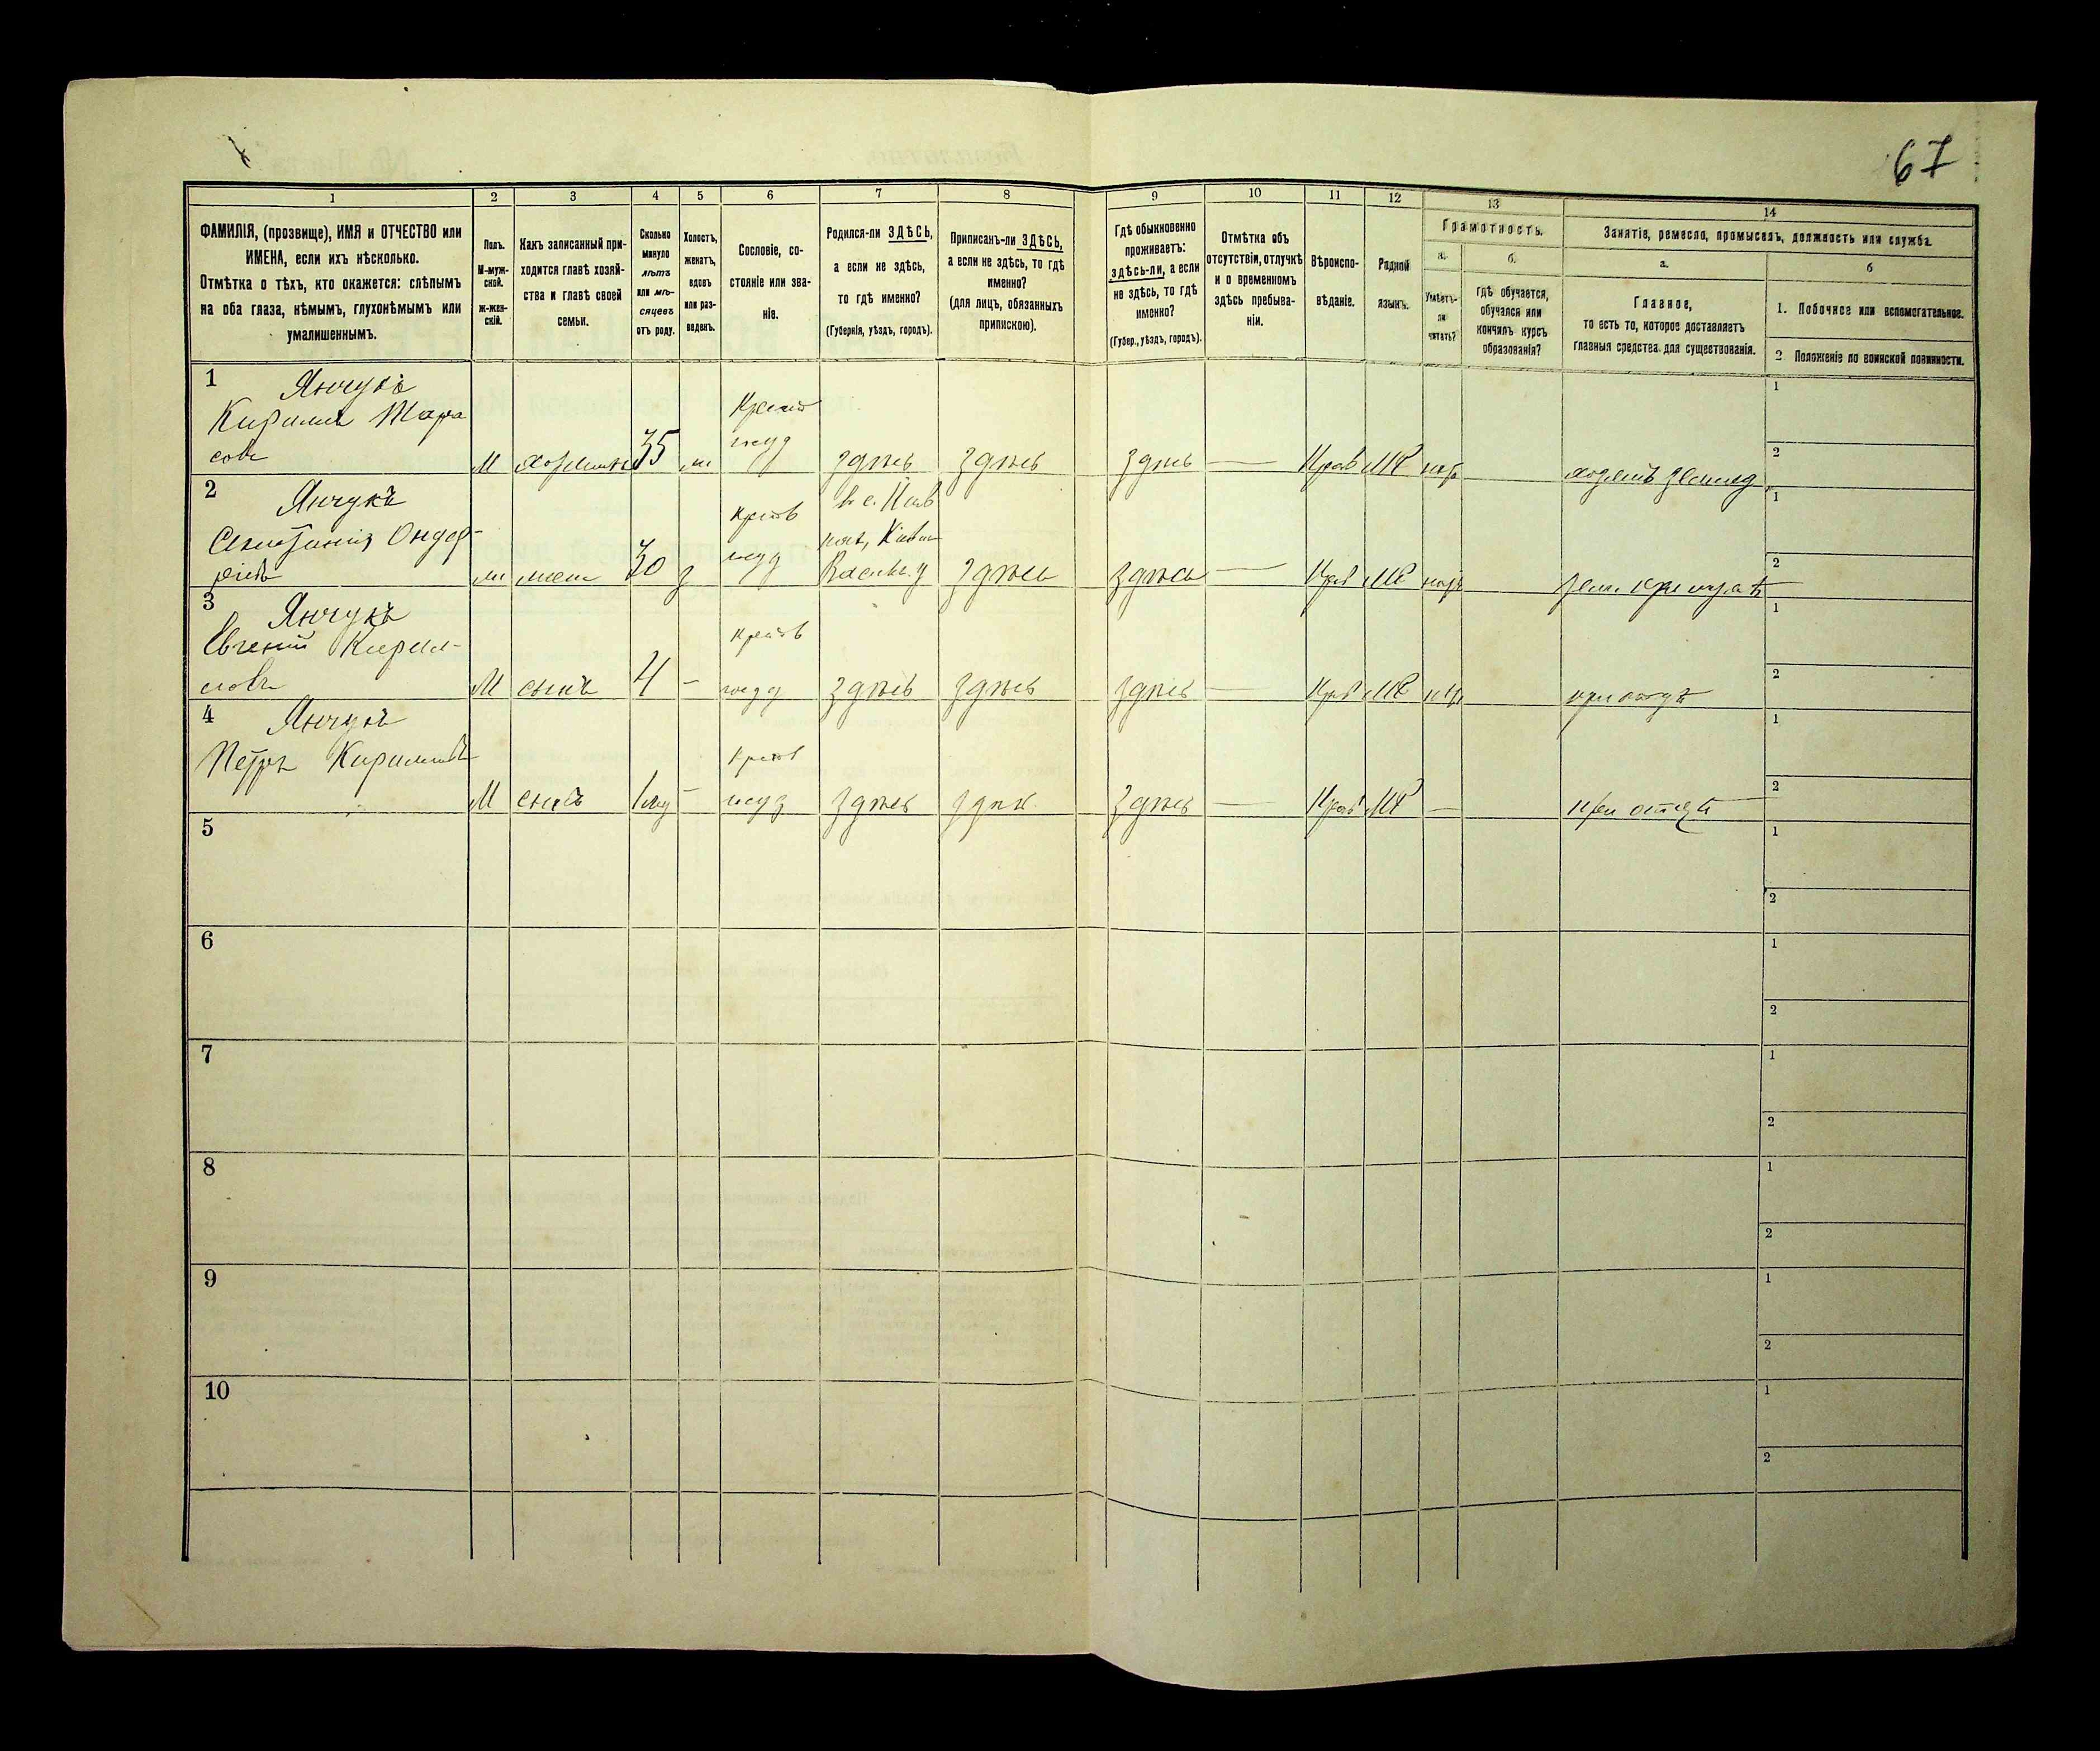 67
1 2 3 4 5 6 7 8 9 10 11 12 13 14
ФАМИЛІЯ, (прозвище), ИМЯ и ОТЧЕСТВО или
ИМЕНА, если ихъ нѣсколько.
Отмѣтка о тѣхъ, кто окажется: слѣпымъ
на оба глаза, нѣмымъ, глухонѣмымъ или
умалишеннымъ.
Полъ.
М-муж-
ской.
ж-жен-
скій.
Какъ записанный при-
ходится главѣ хозяй-
ства и главѣ своей
семьи.
Сколько
минуло
лѣтъ
или мѣ-
сяцевъ
отъ роду.
Холостъ,
женатъ,
вдовъ
или раз-
веденъ.
Сословіе, со-
стояніе или зва-
ніе.
Родился-ли ЗДѢСЬ,
а если не здѣсь,
то гдѣ именно?
(Губернія, уѣздъ, городъ).
Приписанъ-ли ЗДѢСЬ,
а если не здѣсь, то гдѣ
именно?
(для лицъ, обязанныхъ
припискою).
Гдѣ обыкновенно
проживаетъ:
здѣсь-ли, а если
не здѣсь, то гдѣ
именно?
(Губер., уѣздъ, городъ).
Отмѣтка объ
отсутствіи, отлучкѣ
и о временномъ
здѣсь пребыва-
ніи.
Вѣроиспо-
вѣданіе.
Родной
языкъ.
Грамотность.
а.
Умѣетъ-
ли
читать?
б.
Гдѣ обучается,
обучался или
кончилъ курсъ
образованія?
Занятіе, ремесло, промыселъ, должность или служба.
а.
Главное,
то есть то, которое доставляетъ
главныя средства для существованія.
б
1. Побочное или вспомогательное.
2 Положеніе по воинской повинности.
1 Янчукъ
Кирилъ Тара
совъ
М хозяинъ 35 здѣсь здѣсь здѣсь — Прав МР
1
2
2 Янчукъ
М 30 здѣсь здѣсь — Прав МР
1
2
3 Янчукъ
Евгеній Кирил-
ловъ
М сынъ 4 - здѣсь здѣсь здѣсь — Прав МР при отцѣ
1
2
4 Янчукъ
Петръ Кириловъ
М сынъ - здѣсь здѣсь здѣсь — Прав МР — при отцѣ
1
2
5
1
2
6
1
2
7
1
2
8
1
2
9
1
2
10
1
2